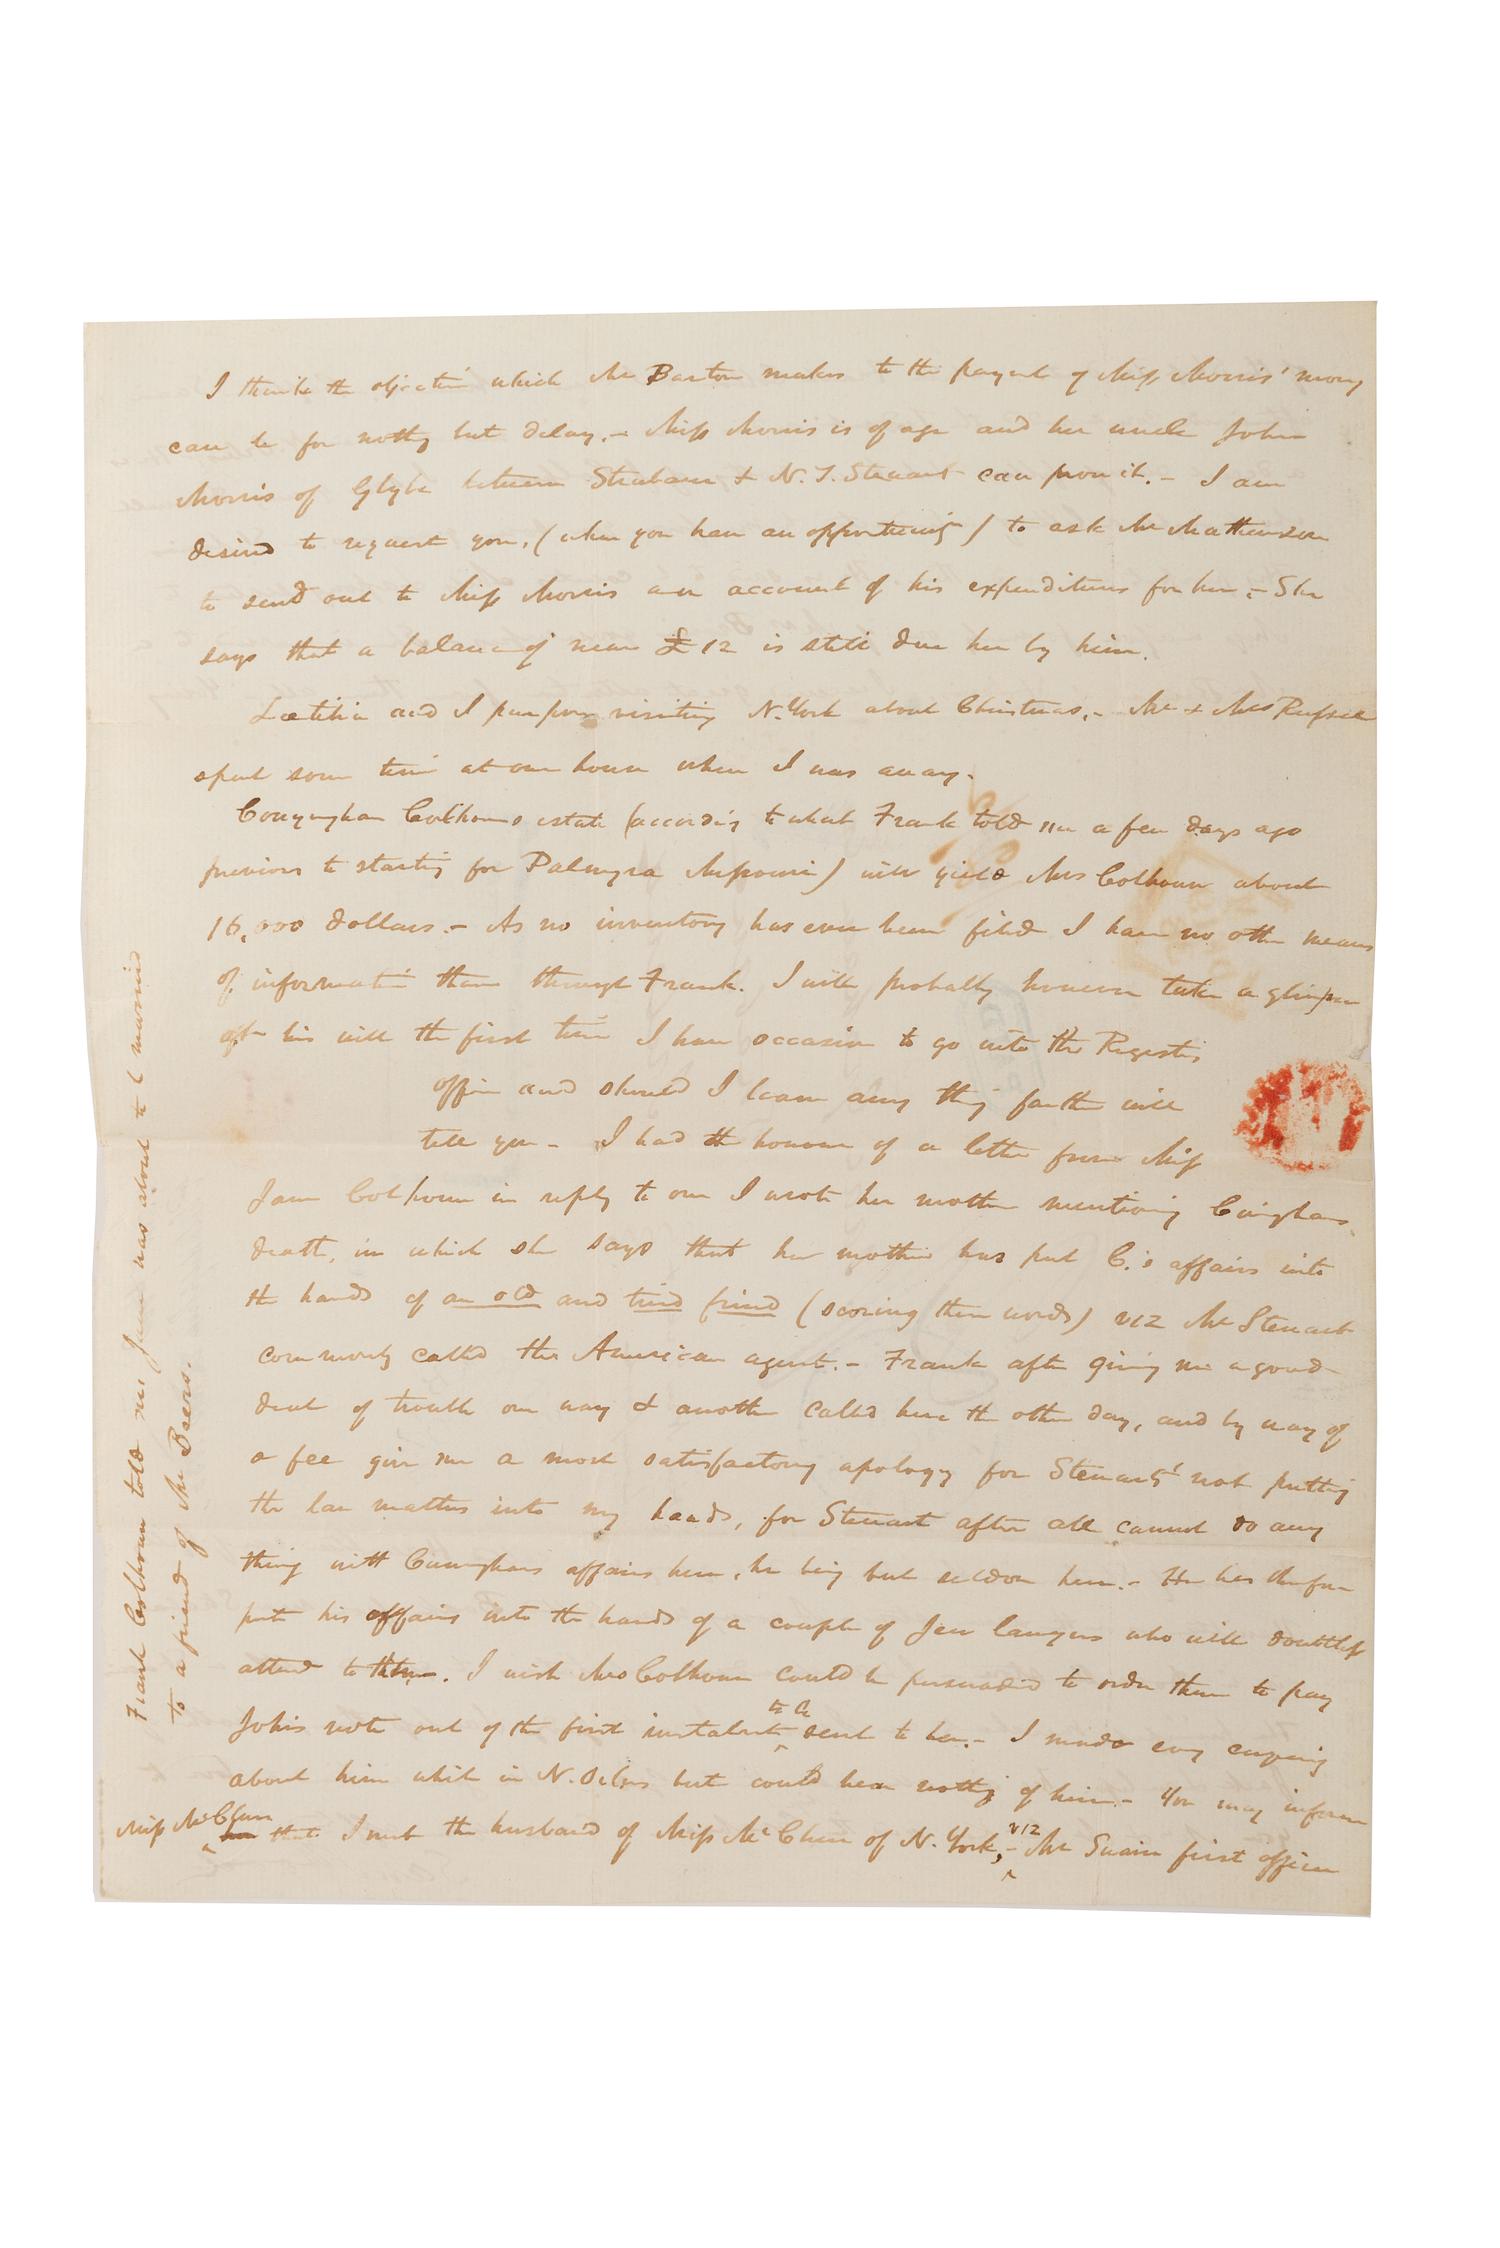 I think the objection which Mr Barton makes to the payment of Miss Morris' money
can be for nothg but delay. - Miss Morris is of age and her uncle John
Morris of Glybe between Strabane & N. T. Steuart can prove it. - I am
desired to request you, (when you have an opportunity) to ask Mr Mathewson
to send out to Miss Morris an account of his expenditures for her; - She
says that a balance of near £12 is still due her by him.
Lætitia and I purpose visiting N. York about Christmas. - Mr & Mrs Russell
spent some time at our house when I was away.
Conyngham Colhouns estate (accordig to what Frank told me a few days ago
previous to startig for Palmyra Missouri) will yield Mrs Colhoun about
16,000 dollars. - As no inventory has ever been filed I have no other means
of information than through Frank. I will probably however take a glimpse
of his will the first time I have occasion to go into the Registers
office and should I learn any thing farther will
tell you - I had the honour of a letter from Miss
Jane Colhoun in reply to one I wrote her mother mentioning Cuinghams
death, in which she says that her mother has put C.'s affairs into
the hands of an old and tried friend (scoring these words) viz Mr Steuart
commonly called the American agent. - Frank after giving me a good
deal of trouble one way & another called here the other day, and by way of
a fee give me a most satisfactory apology for Steuarts' not putting
the law matters into my hands, for Steuart after all cannot do any
thing with Cuninghams affairs here, he being but seldom here. - He has therefore
put his affairs into the hands of a couple of Jew lawyers who will doubtless
attend to them. I wish Mrs Colhoun could be persuaded to order them to pay
to be
Johns note out of the first instalment sent to her. - I made every enquiry
about him while in N. Orlns but could hear nothig of him. - You may inform
Miss McClure that I met the husband of Miss McClure of N. York, - viz Mr Swain first officer
Frank Colhoun told me Jane was about to be married
to a friend of Mr Beers.